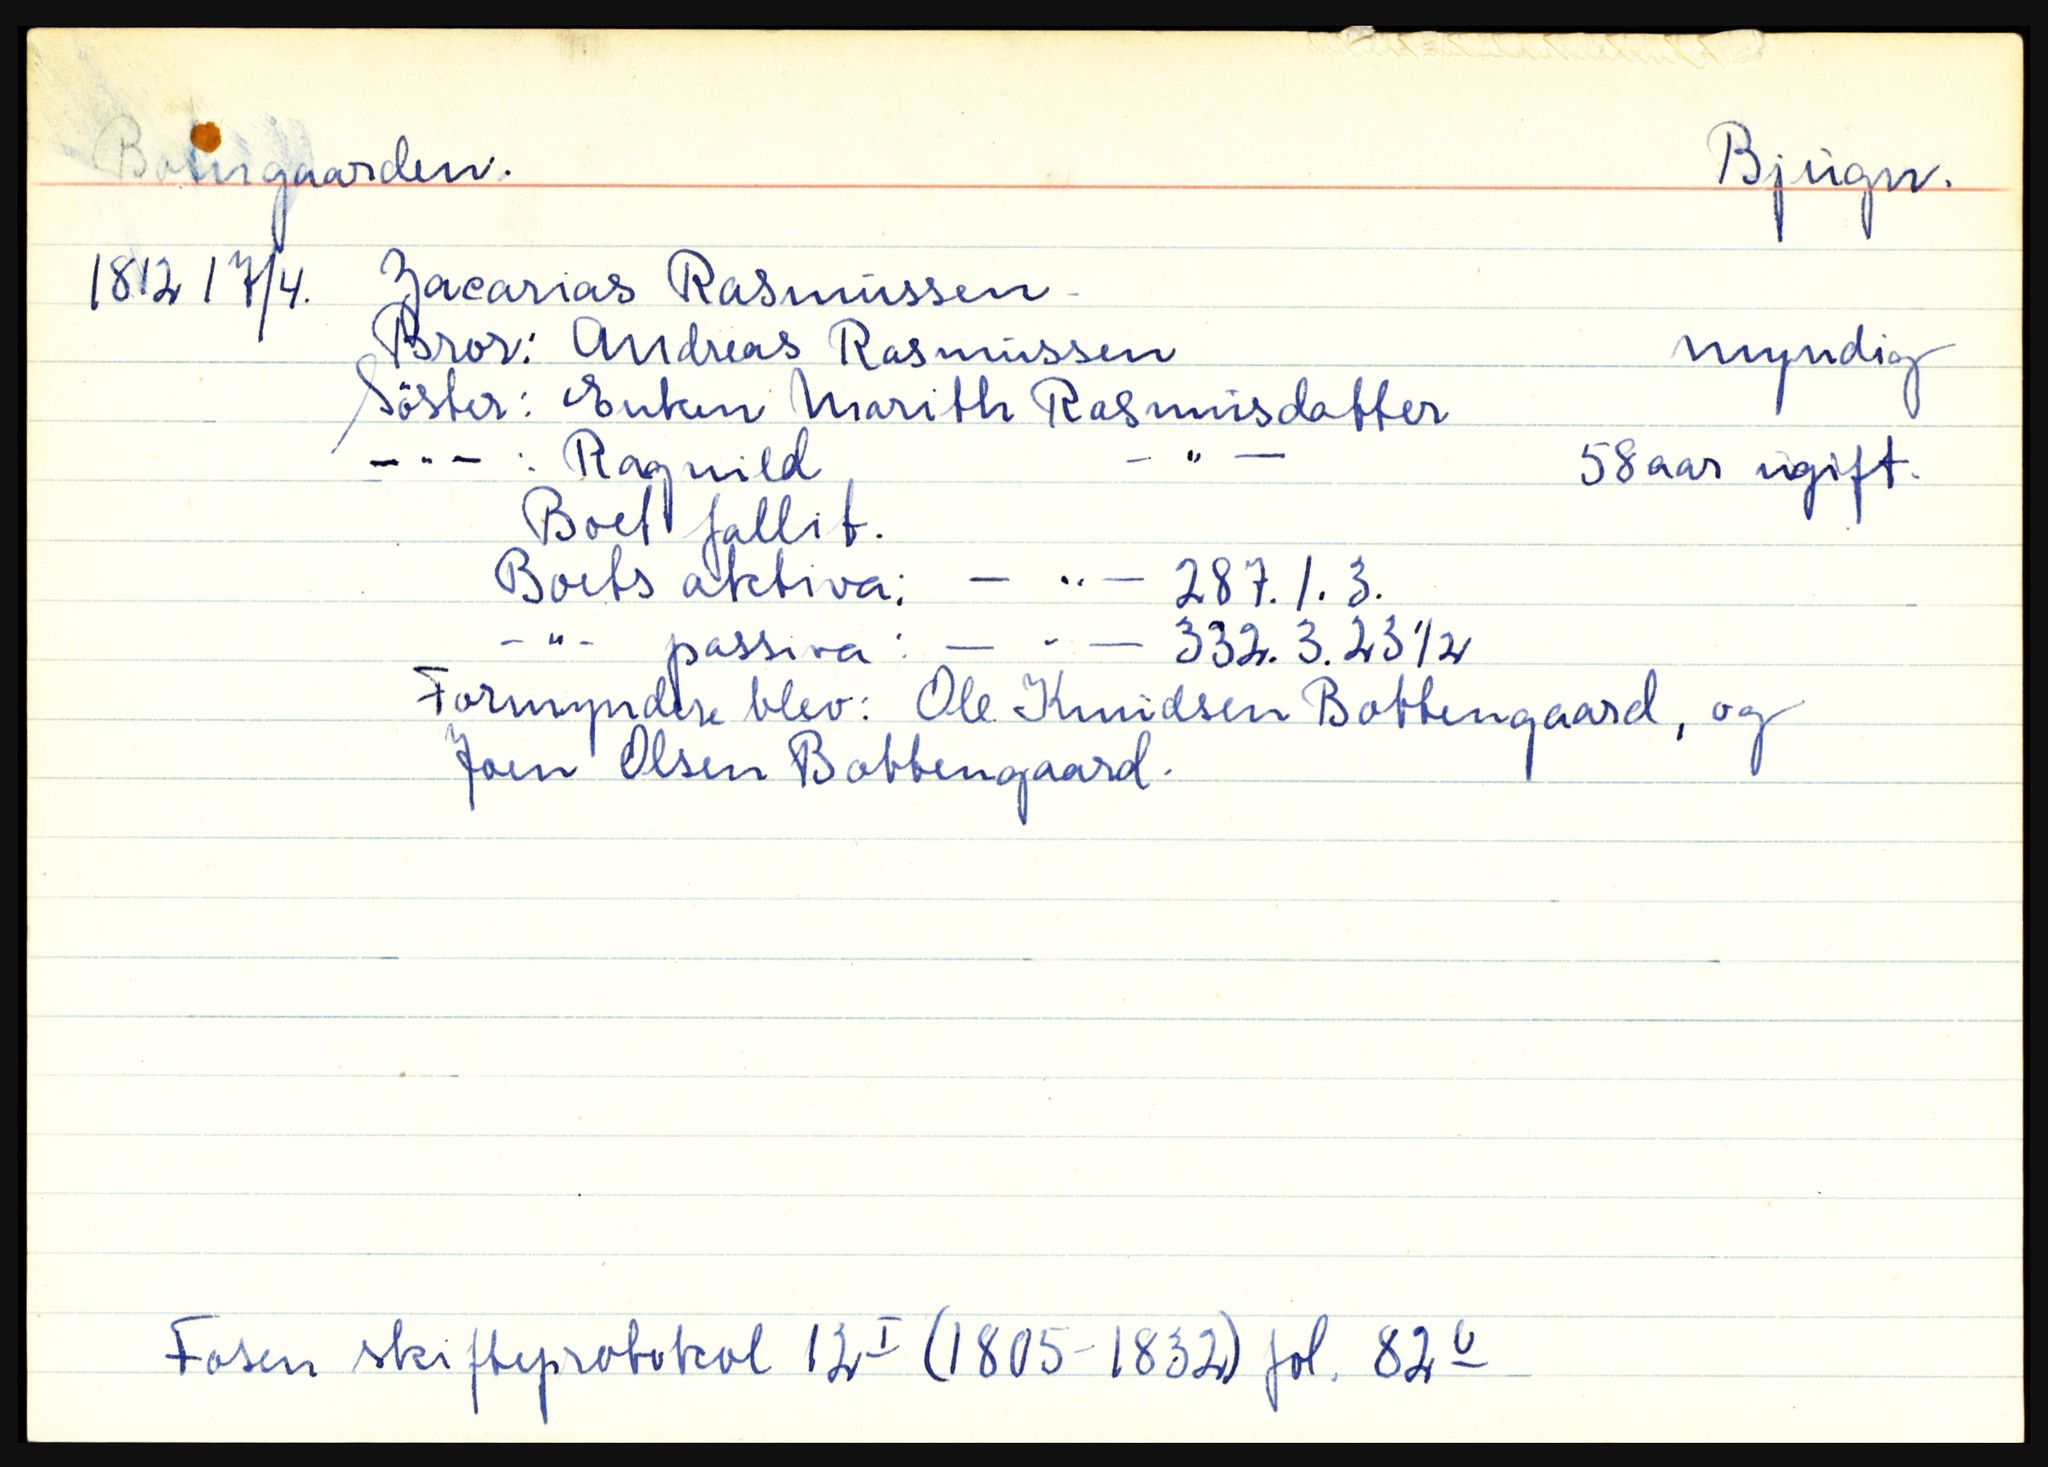 Botngaarden. Bjugn.
1812 17/4. Zacarias Rasmussen
Bror: Andreas Rasmussen myndig
Söster: Enken Marith Rasmusdatter
- " - : Ragnild - " - 58 aar ugift.
Boet fallit.
Boets aktiva: - " - 287. 1. 3.
- " - passiva: - " - 332. 3. 23 1/2
Formyndere blev: Ole Knudsen Bottengaard, og
Joen Olsen Bottengaard.
Fosen skifteprotokol 12 I (1805-1832) fol. 82 b